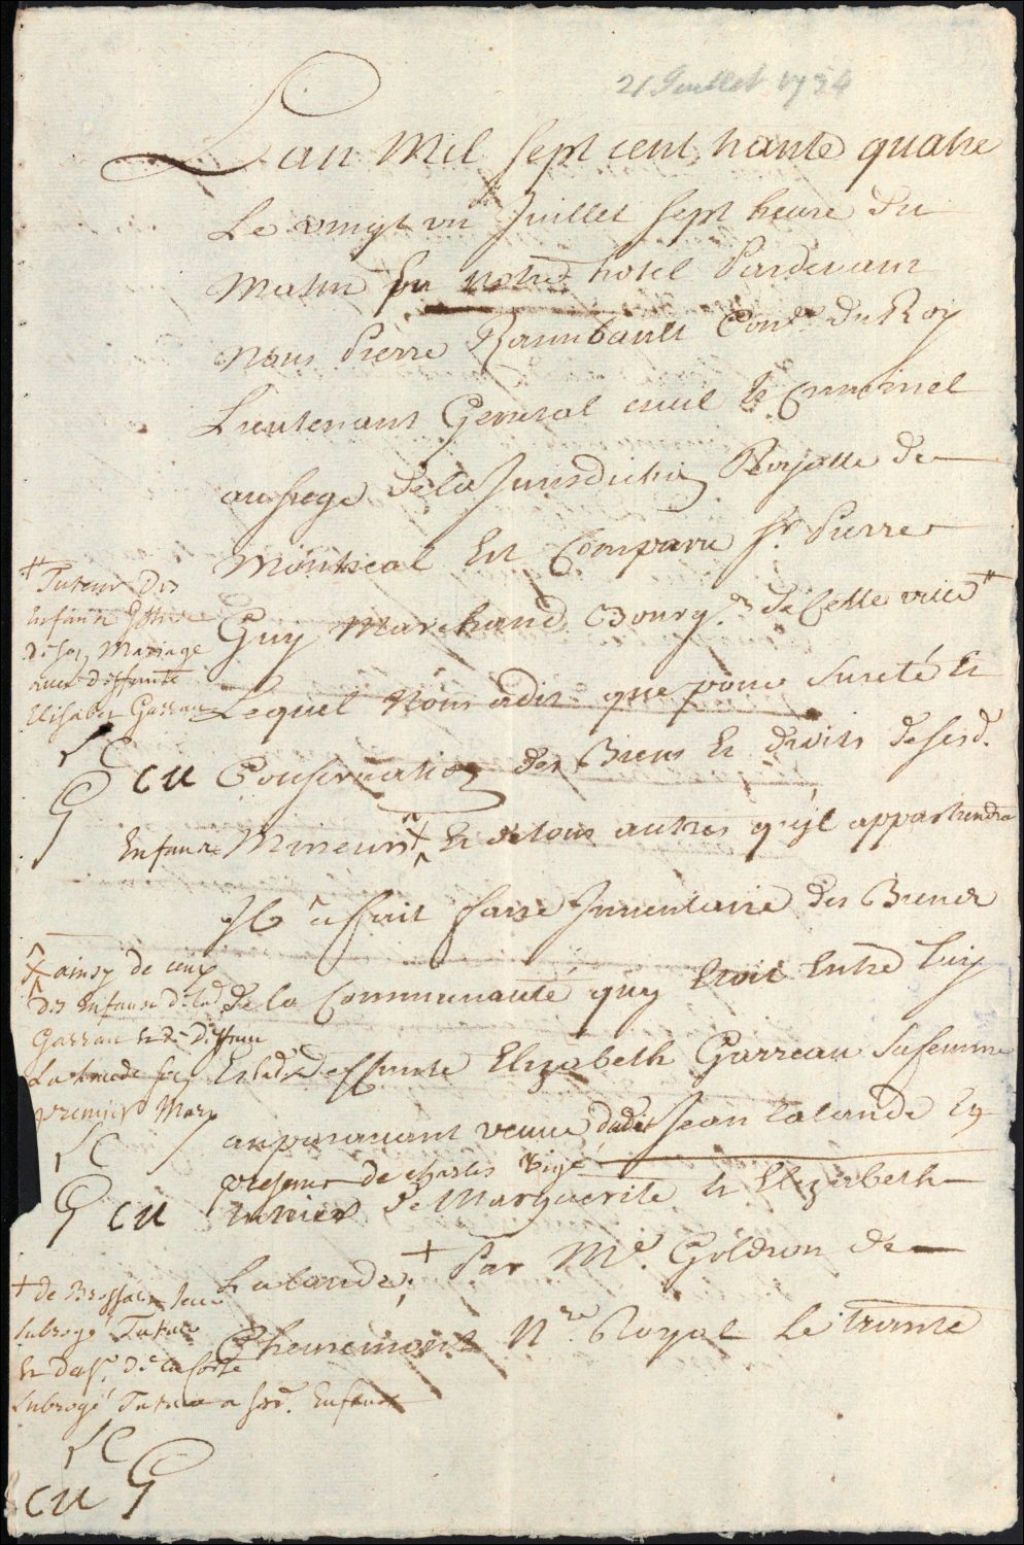 21 Juillet 1734
Lan Mil sept cent trante quatre
Le vingt un Juillet sept heure du
Matin En notre hotel Pardevant
Nous Pierre Raimbault Conr du Roy
Lieutenant General civil & Criminel
au siege de la Jurisdiction Royalle de
Montreal Est Comparu Sr. Pierre
Guy Marchand Bourg. de Cette ville #
Lequel Nous a dit que pour Sureté Et
Conservation des Biens Et droits de sesd.
Enfans Mineurs Et de tous autres qu'jl appartiendra
Jl a fait faire Jnventaire des Biens
de la Communauté quy Etoit Entre luy
Et lade deffunte Elizabeth Garreau sa femme
auparavant veuve dudit Jean Lalande En
presence de charles
de Marguerite & Elizabeth
Lalande, + Par Me. Gôdron de
Chevremont Nre Royal Le trante
# Tuteur des
Enfans
de son Mariage
avec deffunte
Elisabet Garreau
CU
ainsy de ceux
des Enfans de lad
Garreau & de deffunt
Lalande son
premier Mary
CU
+ de
subrogé Tuteur
subrogé Tuteur a sesd. Enfans
CU